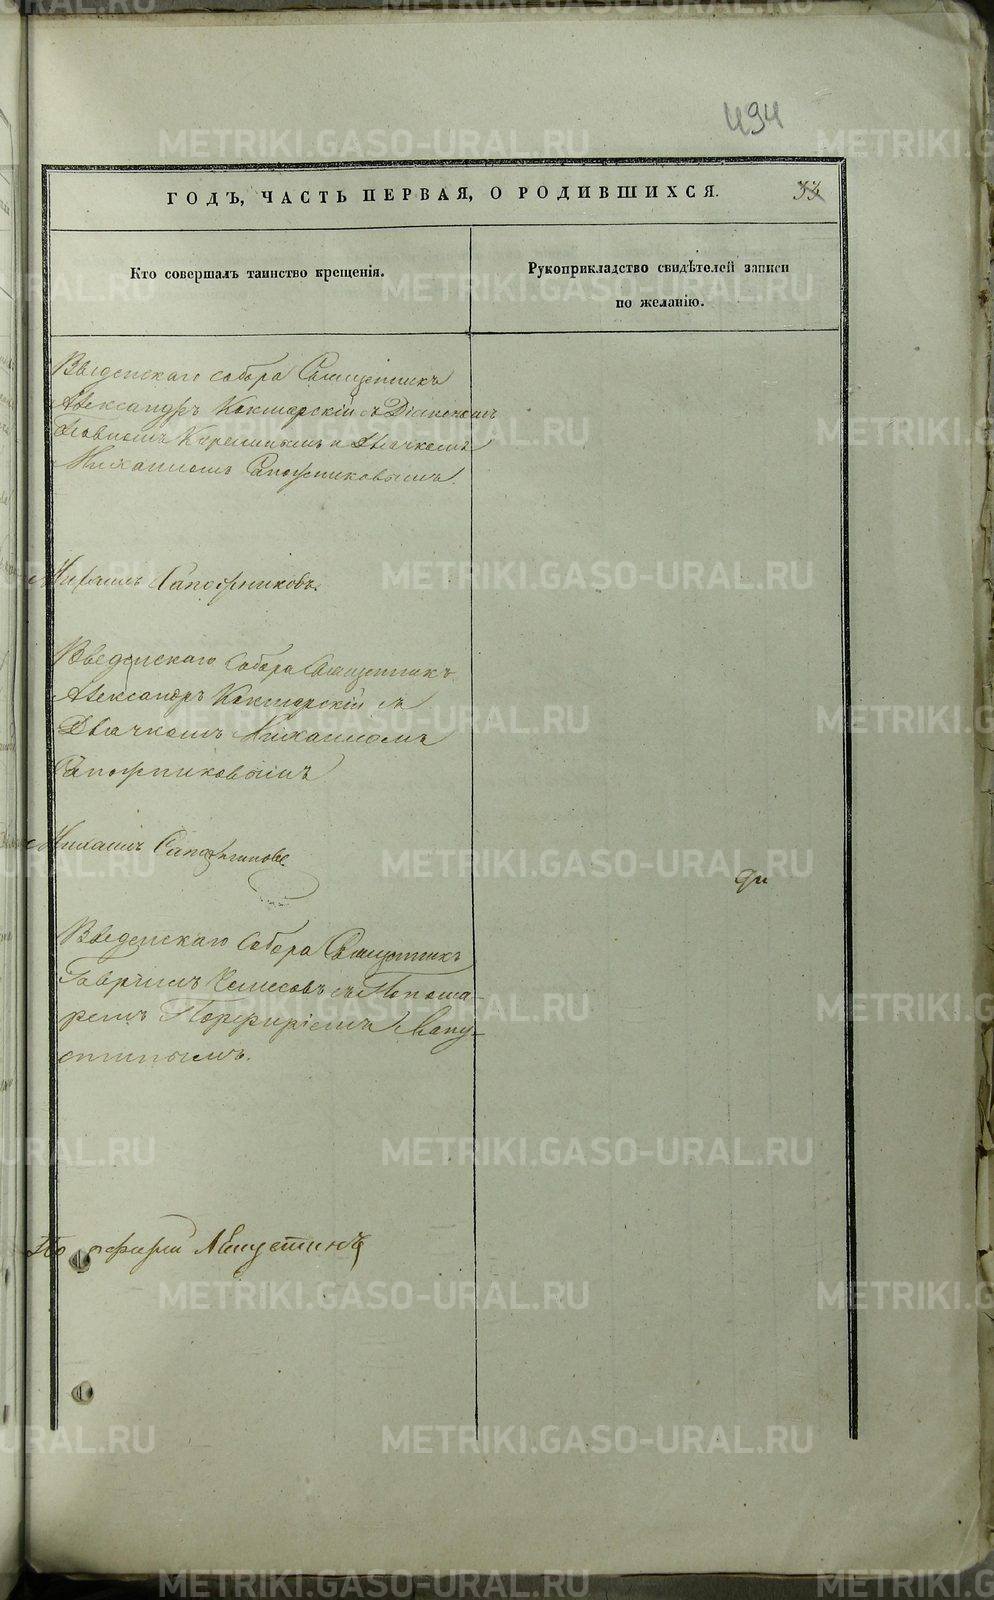 494
ГОДЪ, ЧАСТЬ ПЕРВАЯ, О РОДИВШИХСЯ.
33
Кто совершалъ таинство крещенія.
Рукоприкладство свидѣтелей записи
по желанію.
Введенскаго собора Священникъ
Александръ Кокшарскій съ Діакономъ
и Дьячкомъ
Михаиломъ Сапожниковымъ.
Михаилъ Сапожниковъ.
Введенскаго Собора Священникъ
Александръ Кокшарскій съ
Дьячкомъ Михаиломъ
Сапожниковымъ
Михаилъ Сапожниковъ
Введенскаго Собора Священникъ
Гавріилъ съ Понома-
ремъ Порфиріемъ Лапу-
стинымъ.
METRIKI.GASO-URAL.RU